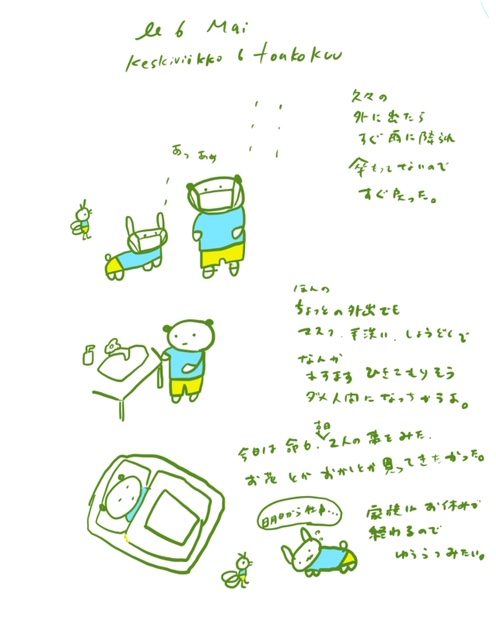 le 6 Mai
Keskiviikko 6 toukokuu
久々の
外に出たら
すぐ雨に降られ
傘もってないので
すぐ戻った。
あっ あめ
ほんの
ちょっとの外出でも
マスク、手洗い、しょうどくで
なんか
ますます ひきこもりそう
ダメ人間になっちゃうよ。
今日は 命日。朝 2人の夢をみた。
お花 とか おかしとか 買ってきたかった。
明日から仕事…
家族は お休みが
終わるので
ゆううつみたい。